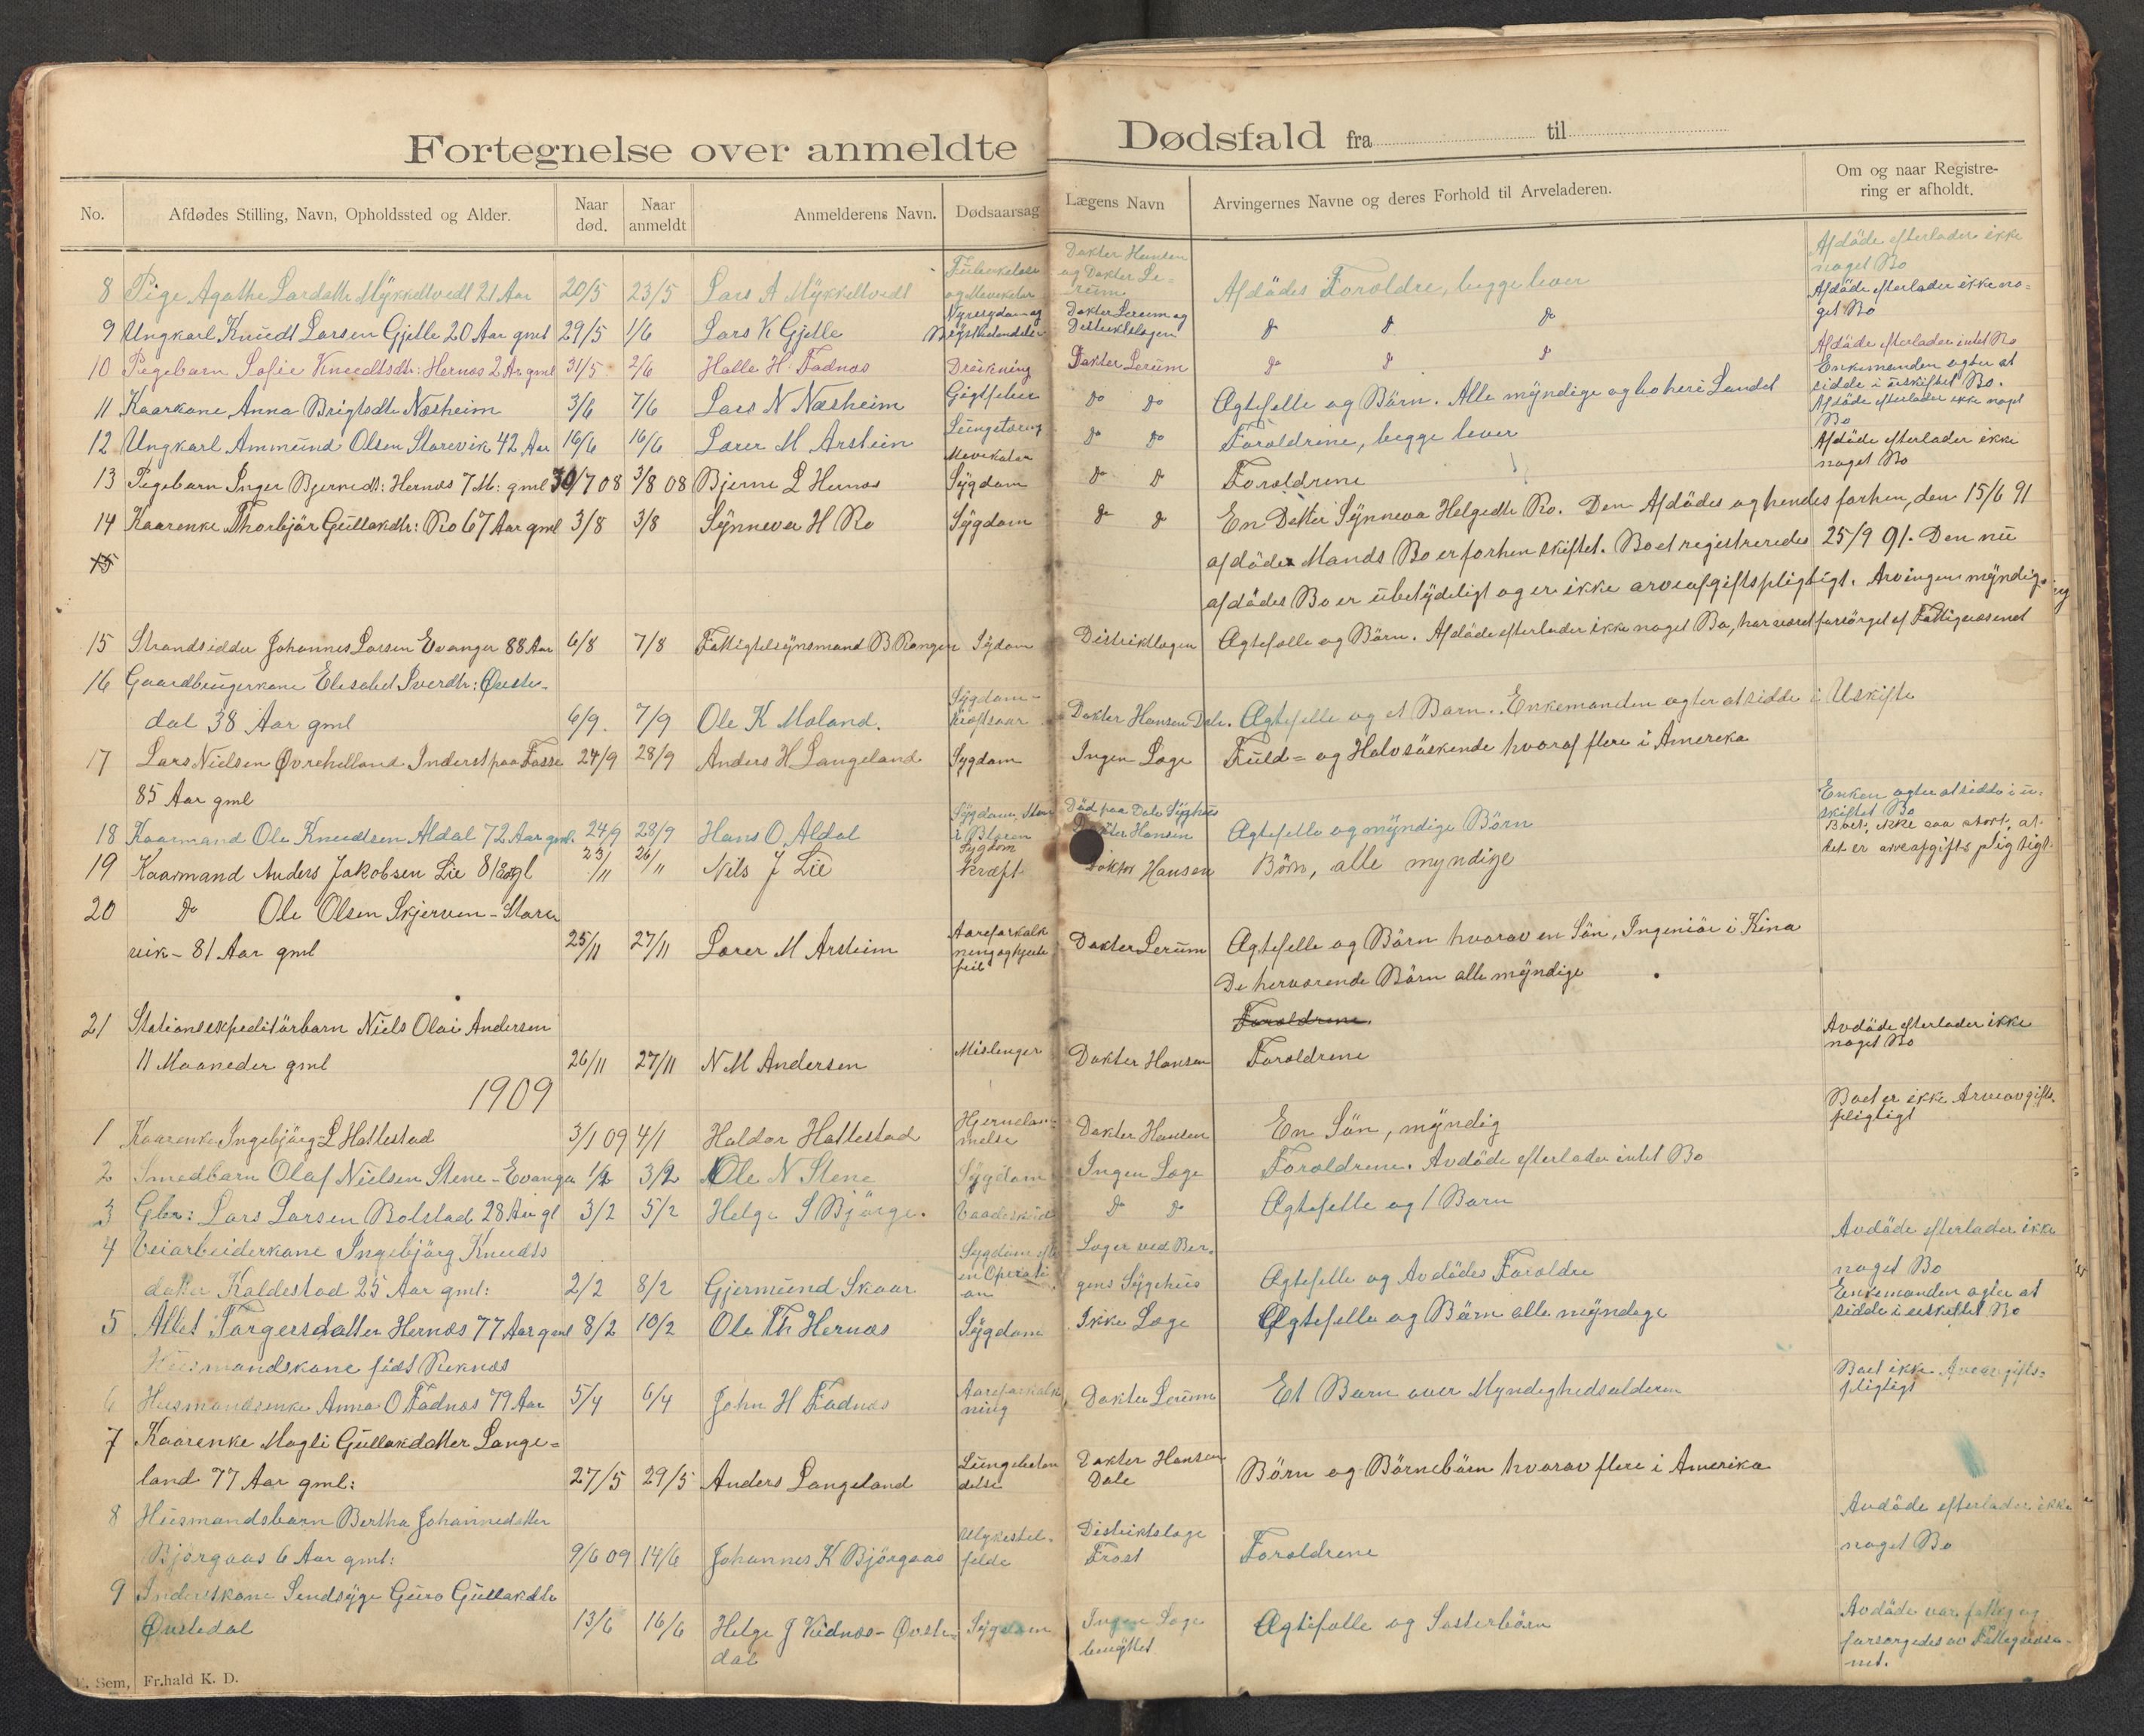 Fortegnelse over anmeldte Dødsfald fra til
No. Afdødes Stilling, Navn, Opholdssted og Alder. Naar død. Naar anmeldt Anmelderens Navn. Dødsaarsag Lægens Navn Arvingernes Navne og deres Forhold til Arveladeren. Om og naar Registrering er afholdt.
Dokter Hansen
Afdöde efterlader ikke
og Dokter Le-
noget Bo
8 Pige Agathe Larsdatter Mykkeltvedt 21 Aar 20/5 23/5 Lars A Mykkeltvedt rum Afdödes Foroldre, begge lever
Afdöde efterlader ikke no-
get Bo
9 Ungkarl Knudt Larsen Gjelle 20 Aar gml 29/5 1/6 Lars K Gjelle Dokter Lerum og Distriktslægen do do do
Afdöde efterlader intet Bo
10 Pigebarn Sofie Knudtsdtr: Hernæs 2 Ar gml 31/5 2/6 Halle H. Fadnæs Drukning Dokter Lerum do do do
Enkemanden agter at
sidde i uskiftet Bo.
11 Kaarkone Anna Brigtsdtr Næsheim 3/6 7/6 Lars N Næsheim Gigtfeber do do Ægtefelle og Börn. Alle myndige og bo her i Landet
Afdöde efterlader ikke noget
Bo
12 Ungkarl Ammund Olsen Storevik 42 Aar 16/6 16/6 Lærer M Arstein Lungetæring do do Foroldrine, begge lever
Afdöde efterlader ikke
noget Bo
13 Pigebarn Inger Bjernedt: Hernæs 7 M: gml 30/7 08 3/8 08 Bjerne L Hernæs Sygdom do do Foroldrene
14 Kaarenke Thorbjör Gullakdtr: Ro 67 Aar gml 3/8 3/8 Synneva H Ro Sygdom do do En Datter Synneva Helgedtr Ro. Den Afdödes og hendes forhen, den 15/6 91
15
afdöde Mands Bo er forhen skiftet. Boet registreredes 25/9 91. Den nu
afdödes Bo er ubetydeligt og er ikke arveafgiftspligtigt. Arvingen myndig
15 Strandsidder Johannes Larsen Evanger 88 Aar 6/8 7/8 Fattigtilsynsmand B Rongen Sydom Distriktlægen Ægtefælle og Börn. Afdöde efterlader ikke noget Bo, har været forsörget af Fattigvæsenet
16 Gaardbrugerkone Elisabet Sverdtr: Øvste-
dal 38 Aar gml 6/9. 7/9 Ole K Moland. Sygdom - Dokter Hansen Dale. Ægtefelle og et Barn. Enkemanden agter at sidde i Uskifte
17 Lars Nielsen Øvrehelland Inderst paa Fosse 24/9 28/9 Anders H Langeland Sygdom Ingen Læge Fuld= og Halvsöskende hvoraf flere i Amerika
85 Aar gml
Död paa Dale Sygehus
Enken agter at sidde i u-
skiftet Bo
18 Kaarmand Ole Knudtsen Aldal 72 Aar gml. 24/9 28/9 Hans O Aldal Sygdom, Sten i Blæren Dokter Hansen Ægtefelle og myndige Börn
Boet, ikke saa stort, at
det er arveafgifts pligtigt.
19 Kaarmand Anders Jakobsen Lie 81 Aar gl 23/11 26/11 Nils J Lie Sygdom kræft Doktor Hansen Börn, alle myndige
20 Do Ole Olsen Skjerven - Store
vik - 81 Aar gml 25/11 27/11 Lærer M Arstein Aareforkalkning og hjertefeil Dokter Lerum Ægtefelle og Börn hvorav en Sön, Ingeniör i Kina
De herværende Börn alle myndige
Foroldrene.
21 Stationsexpeditörbarn Niels Olai Andersen
11 Maaneder gml 26/11 27/11 N M Andersen Meslinger Dokter Hansen Foroldrene
Avdöde efterlader ikke
noget Bo
1909
1 Kaarenke Ingebjörg L Hattestad 3/1 09 4/1 Haldor Hattestad Dokter Hansen En Sön, myndig
Boet er ikke Arveavgifts-
pligtigt
2 Smedbarn Olaf Nielsen Stene - Evanger 1/2 3/2 Ole N Stene Sygdom Ingen Læge Foroldrene. Avdöde efterlader intet Bo
3 Gbr: Lars Larsen Bolstad 28 Aar gl 3/2 5/2 Helge S Björge. Vaadeskud Do Do Ægtefelle og 1 Barn
4 Veiarbeiderkone Ingebjörg Knudts
datter Kaldestad 25 Aar gml: 2/2 8/2 Gjermund Skaar Sygdom efter en Operation Læger ved Bergens Sygehus Ægtefelle og Avdödes Foroldre
Avdöde efterlader ikke
noget Bo
5 Allet Torgersdatter Hernæs 77 Aar gml 8/2 10/2 Ole Th Hernæs Sygdom Ikke Læge Ægtefelle og Börn alle myndege
Enkemanden agter at
sidde i uskiftet Bo
Husmandskone födt Reknæs
6 Husmandsenke Anna O Fadnæs 79 Aar 5/4 6/4 John H Fadnæs Aareforkalkning Dokter Lerum Et Barn over Myndighedsalderen
Boet ikke Arveavgifts=
pligtigt
7 Kaarenke Magli Gullakdatter Lange=
land 77 Aar gml: 27/5 29/5 Anders Langeland Lungebetændelse Dokter Hansen Dale Börn og Börnebörn hvorav flere i Amerika
8 Husmandsbarn Bertha Johannedatter
Björgaas 6 Aar gml: 9/6 09 14/6 Johannes K Björgaas Ulykkestilfelde Distriktslæge Frost Foroldrene
Avdöde efterlader ikke
noget Bo
9 Inderstkone Sendsyge Guro Gullakdtr
Øvstedal 13/6 16/6 Helge J Vidnæs - Øvste- dal Sygdom Ingen Læge benyttet Ægtefælle og Sösterbörn
Avdöde var fattig og
forsorgedes av Fattigvæse-
net.
E. Sem, Fr.hald K. D.